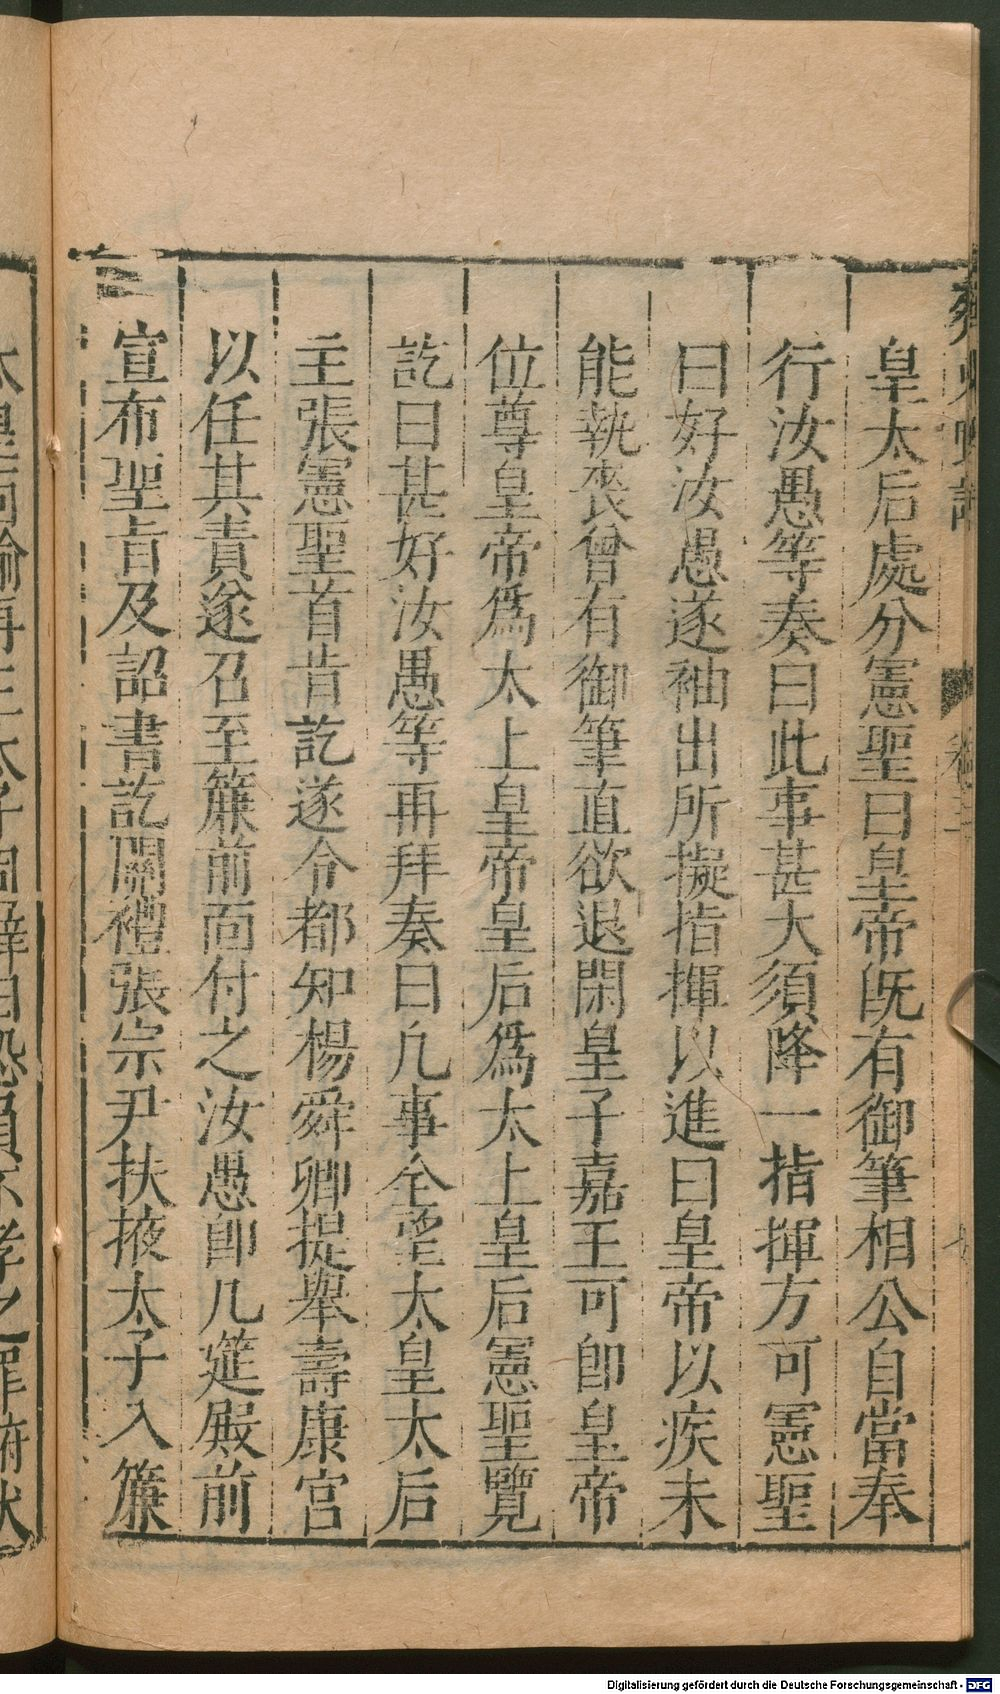 皇太后處分憲聖曰皇帝既有御筆相公自當奉
行汝愚等奏曰此事甚大須降一指揮方可憲聖
曰好汝愚遂袖出所擬指揮以進曰皇帝以疾未
能執喪曾有御筆直欲退閑皇子嘉王可卽皇帝
位尊皇帝爲太上皇帝皇后爲太上皇后憲聖覽
訖曰甚好汝愚等再拜奏曰凡事全望太皇太后
主張憲聖首肯訖遂令都知楊舜卿提舉壽康宮
以任其責遂召至簾前面付之汝愚卽几筵殿前
宣布聖旨及詔書訖關禮張宗尹扶掖太子入簾
Digitalisierung gefördert durch die Deutsche Forschungsgemeinschaft - DFG